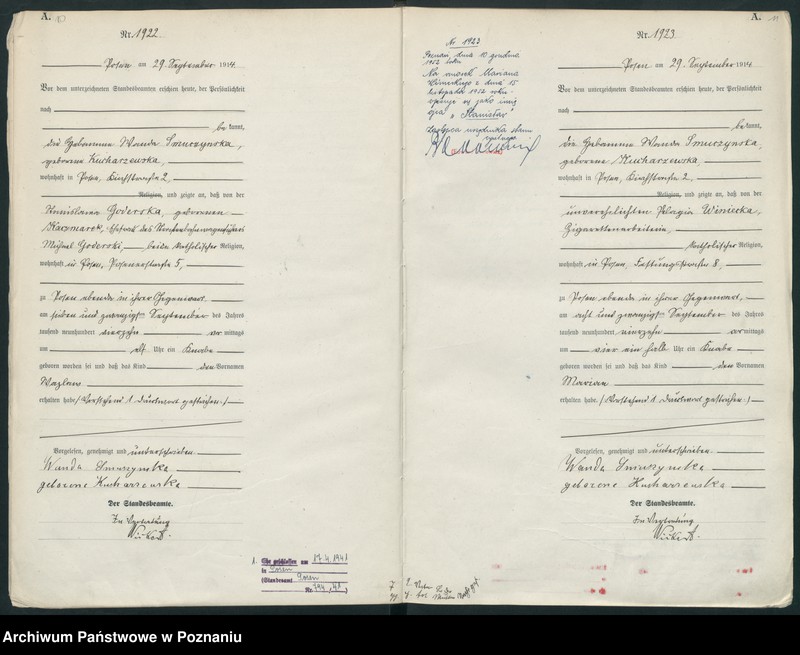 A.
Nr. 1922
Posen am 29. September 1914.
Vor dem unterzeichneten Standesbeamten erschien heute, der Persönlichkeit
nach
bekannt,
die Hebamme Wanda Smurzynska,
geborene Kucharzewska,
wohnhaft in Posen, 2,
Religion, und zeigte an, daß von der
Goderska, geborenen
Kaczmarek, Ehefrau des
Michael Goderski, beide katholischer Religion,
wohnhaft in Posen, Posenerstraße 5,
zu Posen ebenda in ihrer Gegenwart
am sieben und zwanzigsten September des Jahres
tausend neunhundert vierzehn vormittags
um elf Uhr ein Knabe
geboren worden sei und daß das Kind den Vornamen
Wazlaw
erhalten habe. (Vorstehend 1 Druckwort gestrichen.)
Vorgelesen, genehmigt und unterschrieben.
Wanda Smurzynska
geborene Kucharzewska
Der Standesbeamte.
In Vertretung
1. Ehe geschlossen am 17.4.1941
in Posen
(Standesamt Posen
Nr. 41)
Nr 1923
Poznań dnia 10 grudnia
1952 roku
Na wniosek Mariana
z dnia 15
listopada 1952 roku
się jako imię
"Stanisław"
A. 11
Nr. 1923
Posen am 29. September 1914
Vor dem unterzeichneten Standesbeamten erschien heute, der Persönlichkeit
nach
bekannt,
die Hebamme Wanda Smurzynska,
geborene Kucharzewska,
wohnhaft in Posen, 2,
Religion, und zeigte an, daß von der
unverehelichten Pelagia Winiecka,
Zigarettenarbeiterin,
katholischer Religion,
wohnhaft in Posen, Festungsstraße 8,
zu Posen ebenda in ihrer Gegenwart,
am acht und zwanzigsten September des Jahres
tausend neunhundert vierzehn vormittags
um vier ein halb Uhr ein Knabe
geboren worden sei und daß das Kind den Vornamen
Marian
erhalten habe. (Vorstehend 1 Druckwort gestrichen.)
Vorgelesen, genehmigt und unterschrieben.
Wanda Smurzynska
geborene Kucharzewska
Der Standesbeamte.
In Vertretung
Archiwum Państwowe w Poznaniu